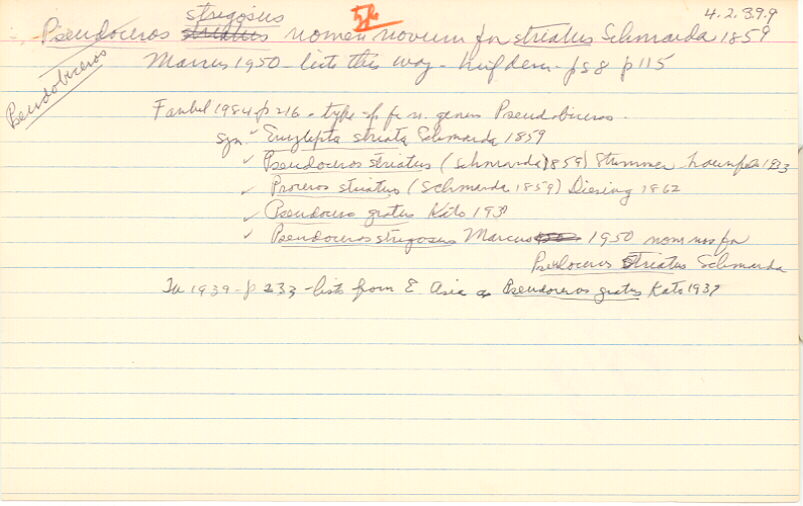 strigosus 4.2.39.9
Pseudoceros striatus nomen novum for striatus Schmarda 1859
Pseudobiceros
Marcus 1950 - lists this way - p 58 p 115
Faubel 1984 p 216 - type sp for n. genus Pseudobiceros.
syn ✓ Eurylepta striata Schmarda 1859
✓ Pseudoceros striatus (Schmarda 1859) Stummer Traunfels 1933
✓ Proceros striatus (Schmarda 1859) Diesing 1862
✓ Pseudoceros gratus Kato 1937
✓ Pseudoceros strigosus Marcus 1950 nom nov for
Pseudoceros striatus Schmarda
1939 - p 233 - lists from E. Asia as Pseudoceros gratus Kato 1937